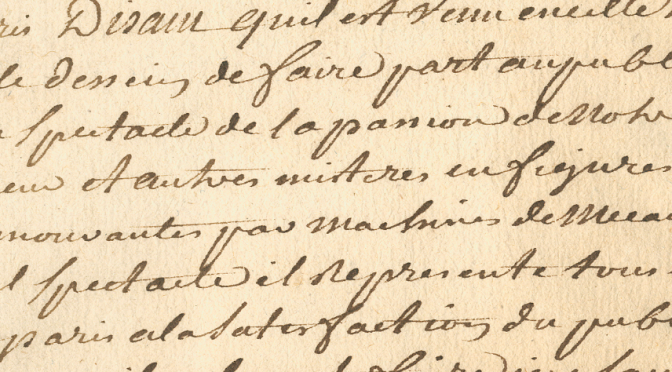 ris Disant quil est venu en cette
le dessein de faire part au publ
spectacle de la passion de Notre
eur et autres misteres en figures
mouvantes par machines de Mecan
l spectacle il Represente tous
paris a la satisfaction du publ